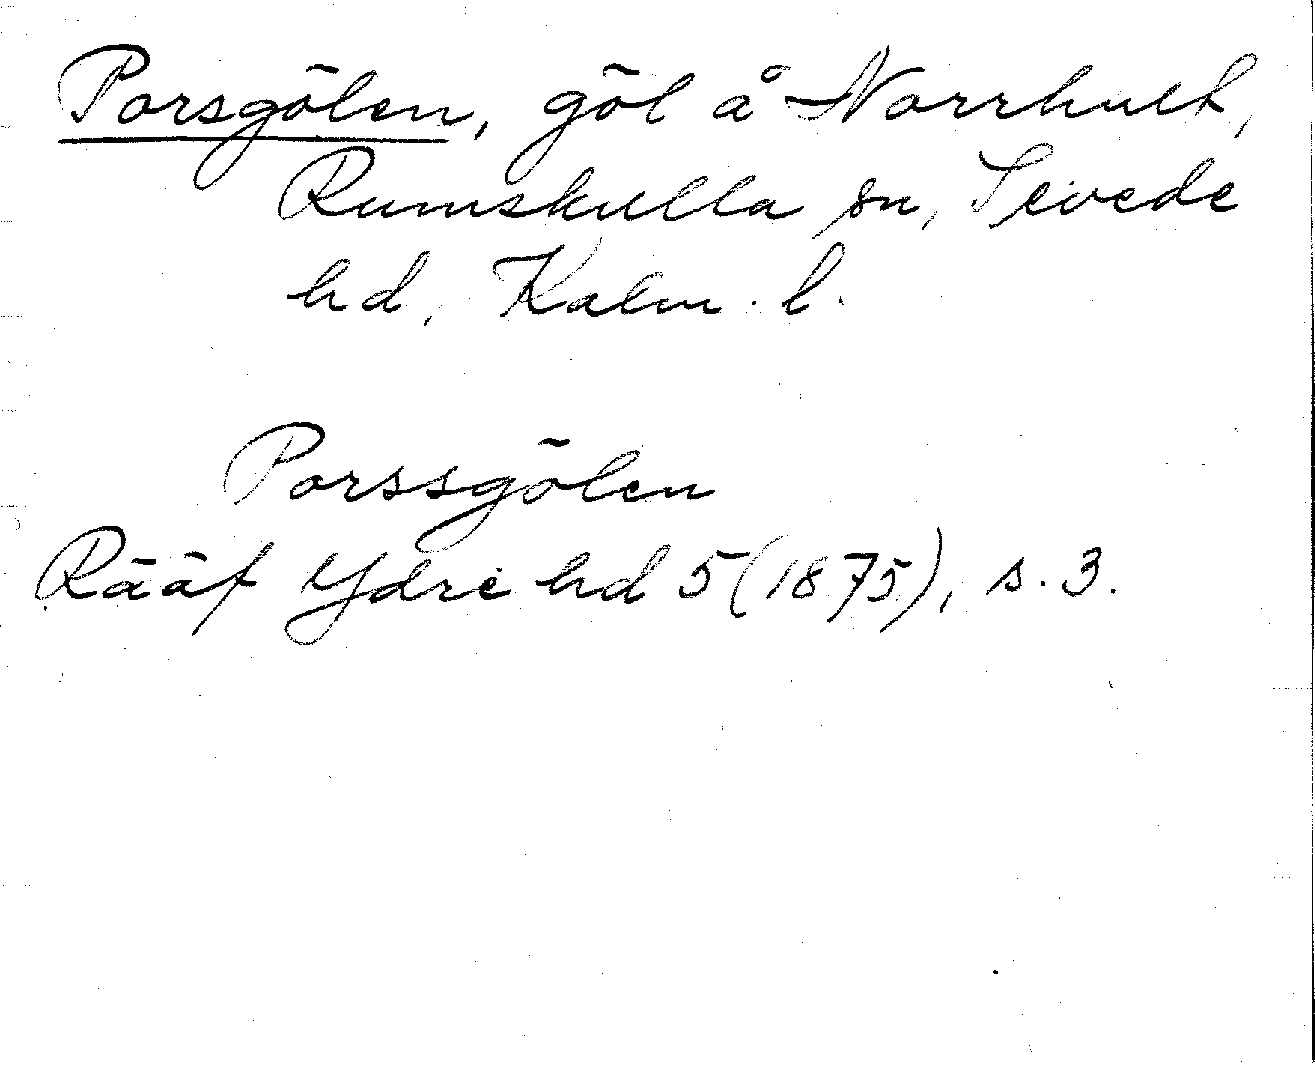 Porsgölen, göl å Norrhult,
Rumskulla sn, Sevede
hd, Kalm. l.
Porssgölen
Rääf Ydre hd 5 (1875), s. 3.